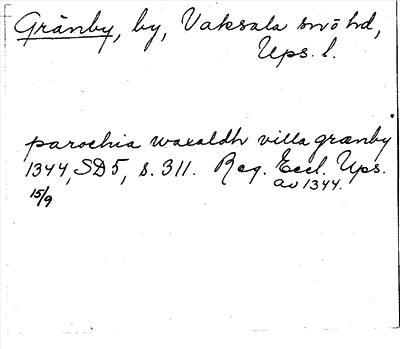 Gränby, by, Vaksala sn o hd,
Ups. l.
parochia waxaldh villa grænby
1344, SD5, s. 311. Reg. Eccl. Ups.
av 1344.
15/9